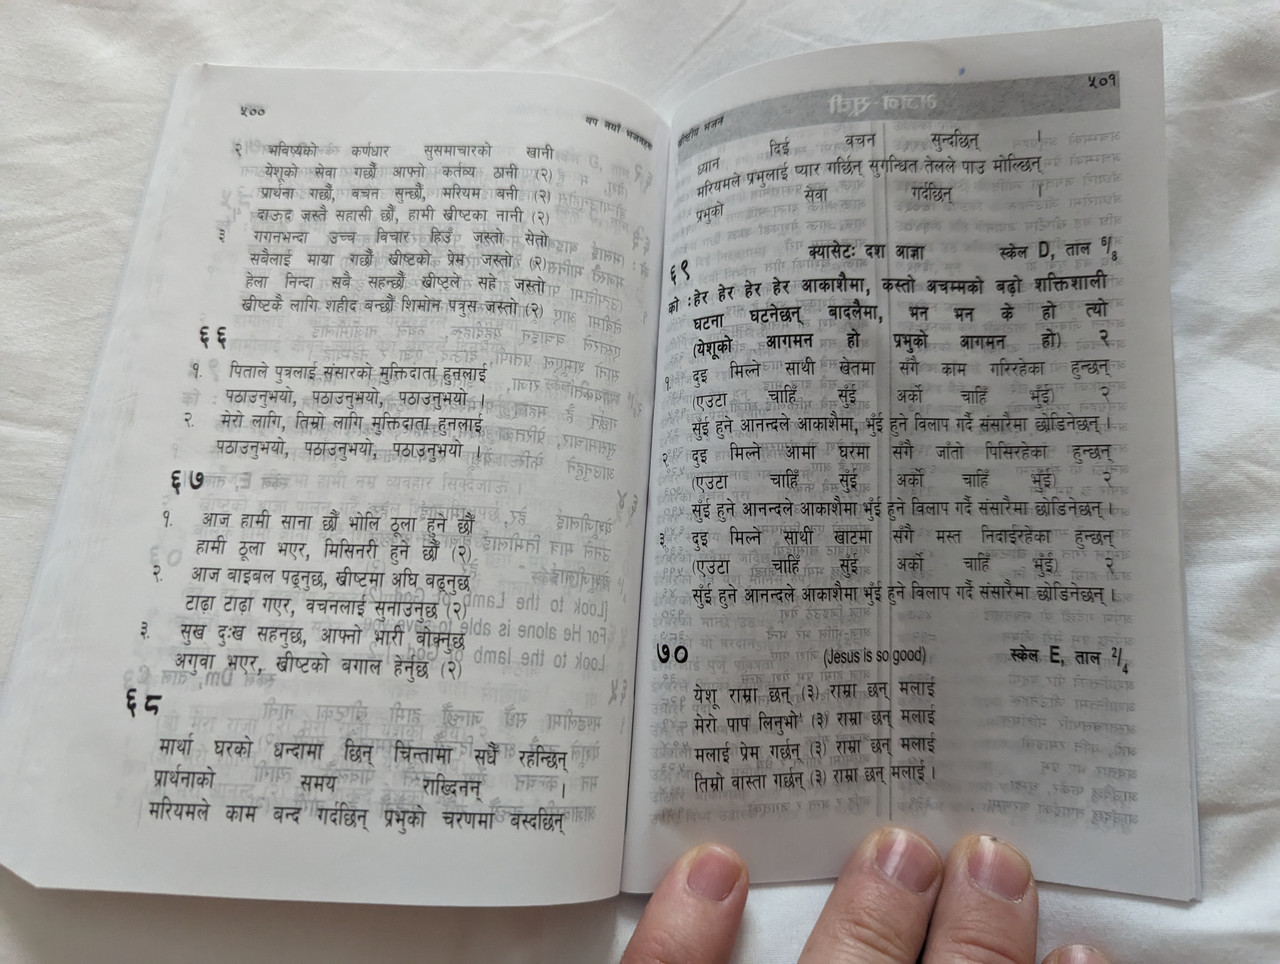 ५००
थप नयाँ भजनहरू
२ भविष्यको कर्णधार सुसमाचारको खानी
येशूको सेवा गछौं आफ्नो कर्तव्य ठानी (२)
प्रार्थना गछौं, वचन सुन्छौं, मरियम बनी (२)
दाऊद जस्तै सहासी छौं, हामी ख्रीष्टका नानी (२)
३ गगनभन्दा उच्च विचार हिउँ जस्तो सेतो
सबैलाई माया गछौं ख्रीष्टको प्रेम जस्तो (२)
हेला निन्दा सबै सहन्छौं ख्रीष्टले सहे जस्तो
ख्रीष्टकै लागि शहीद बन्छौं शिमोन पत्रुस जस्तो (२)
६६
१. पिताले पुत्रलाई संसारको मुक्तिदाता हुनलाई
पठाउनुभयो, पठाउनुभयो, पठाउनुभयो ।
२. मेरो लागि, तिम्रो लागि मुक्तिदाता हुनलाई
पठाउनुभयो, पठाउनुभयो, पठाउनुभयो ।
६७
१. आज हामी साना छौं भोलि ठूला हुने छौं
हामी ठूला भएर, मिसिनरी हुने छौं (२)
२. आज बाइबल पढ्नुछ, ख्रीष्टमा अघि बढ्नुछ
टाढा टाढा गएर, वचनलाई सुनाउनुछ (२)
३. सुख दुःख सहनुछ, आफ्नो भारी बोक्नुछ
अगुवा भएर, ख्रीष्टको बगाल हेर्नुछ (२)
६८
मार्था घरको धन्दामा छिन् चिन्तामा सधैं रहन्छिन्
प्रार्थनाको समय राख्दिनन् ।
मरियमले काम बन्द गर्दछिन् प्रभुको चरणमा बस्दछिन्
ख्रीष्टीय भजन
५०१
ध्यान दिई वचन सुन्दछिन् ।
मरियमले प्रभुलाई प्यार गर्छिन् सुगन्धित तेलले पाउ मोल्छिन्
प्रभुको सेवा गर्दछिन् ।
६९ क्यासेटः दश आज्ञा स्केल D, ताल 6/8
को : हेर हेर हेर हेर आकाशैमा, कस्तो अचम्मको बढो शक्तिशाली
घटना घटनेछन् बादलैमा, भन भन के हो त्यो
(येशूको आगमन हो प्रभुको आगमन हो) २
१. दुइ मिल्ने साथी खेतमा सँगै काम गरिरहेका हुन्छन्
(एउटा चाहिँ सुँई अर्को चाहिँ भुँई) २
सुँई हुने आनन्दले आकाशैमा, भुँई हुने विलाप गर्दै संसारैमा छोडिनेछन् ।
२ दुइ मिल्ने आमा घरमा सँगै जाँतो पिसिरहेका हुन्छन्
(एउटा चाहिँ सुँई अर्को चाहिँ भुँई) २
सुँई हुने आनन्दले आकाशैमा भुँई हुने विलाप गर्दै संसारैमा छोडिनेछन् ।
३ दुइ मिल्ने साथी खाटमा सँगै मस्त निदाईरहेका हुन्छन्
(एउटा चाहिँ सुँई अर्को चाहिँ भुँई) २
सुँई हुने आनन्दले आकाशैमा भुँई हुने विलाप गर्दै संसारैमा छोडिनेछन् ।
७० (Jesus is so good) स्केल E, ताल 2/4
येशू राम्रा छन् (३) राम्रा छन् मलाई
मेरो पाप लिनुभो' (३) राम्रा छन् मलाई
मलाई प्रेम गर्छन् (३) राम्रा छन् मलाई
तिम्रो वास्ता गर्छन् (३) राम्रा छन् मलाई ।